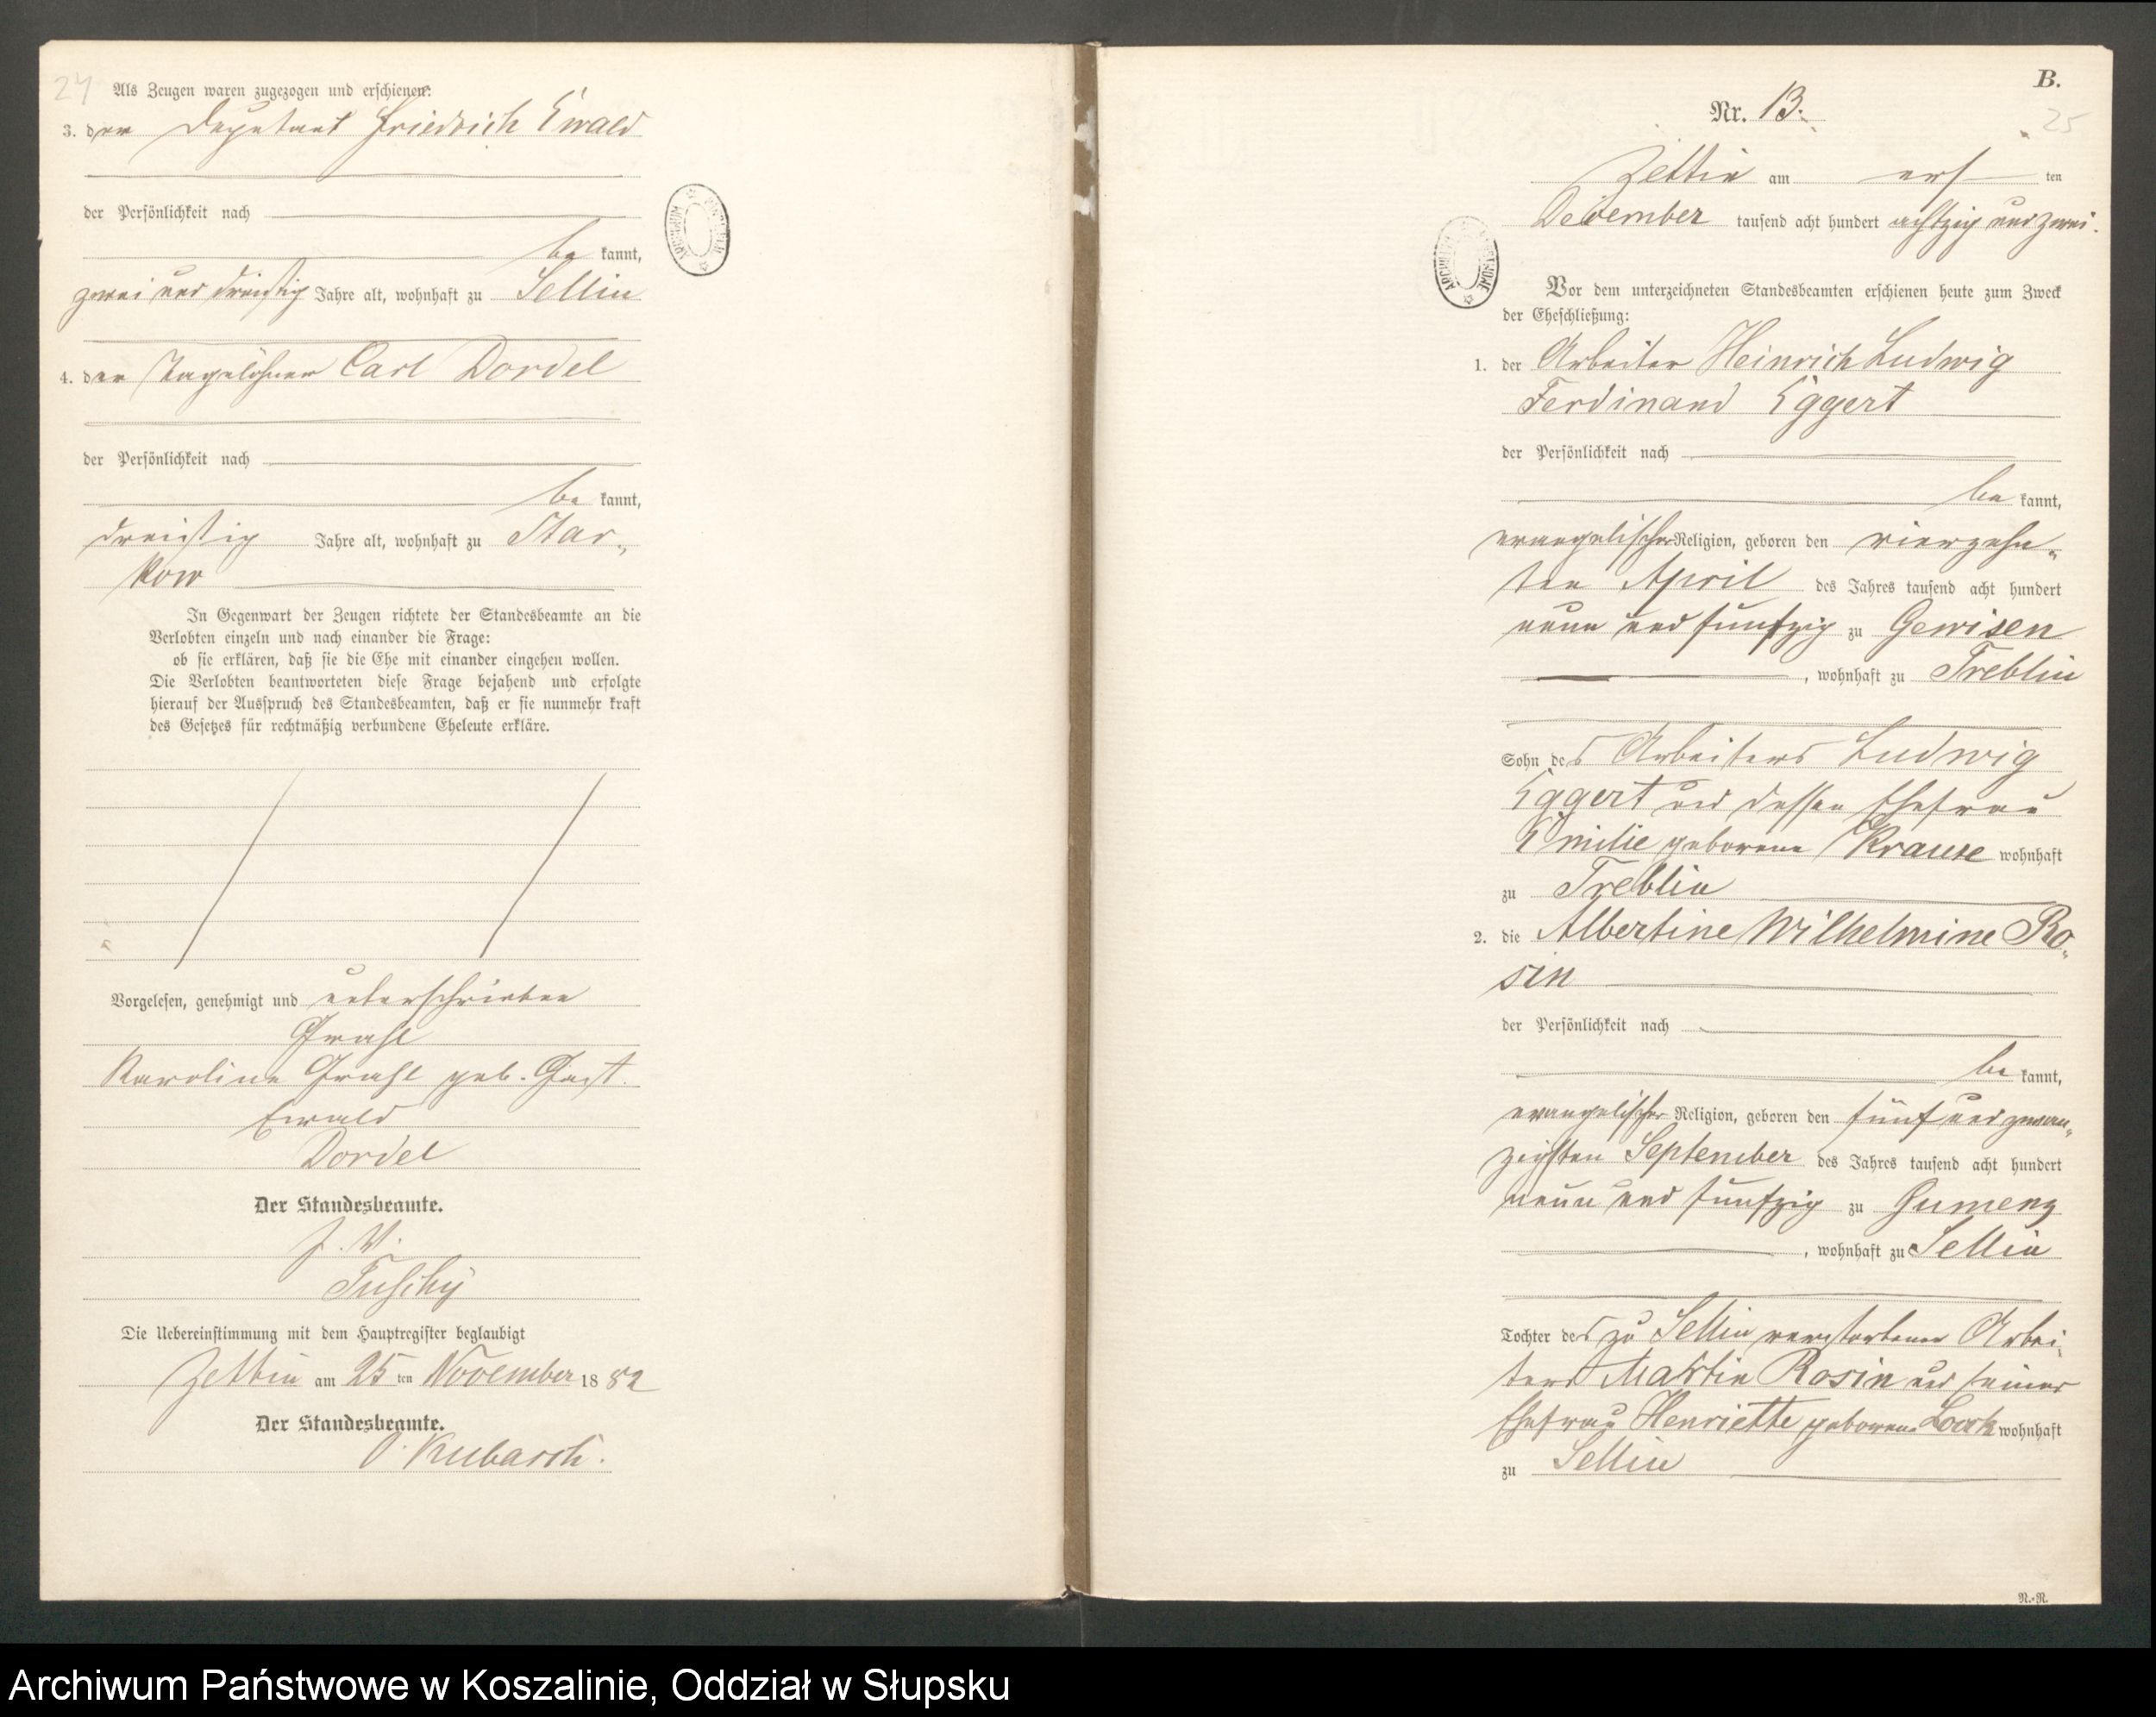 24
Als Zeugen waren zugezogen und erschienen:
3. der Deputant Friedrich Ewald
der Persönlichkeit nach
be kannt,
zwei und dreißig Jahre alt, wohnhaft zu Sellin
4. der Tagelöhner Carl Dordel
der Persönlichkeit nach
be kannt,
dreißig Jahre alt, wohnhaft zu Star-
kow
In Gegenwart der Zeugen richtete der Standesbeamte an die
Verlobten einzeln und nach einander die Frage:
ob sie erklären, daß sie die Ehe mit einander eingehen wollen.
Die Verlobten beantworteten diese Frage bejahend und erfolgte
hierauf der Ausspruch des Standesbeamten, daß er sie nunmehr kraft
des Gesetzes für rechtmäßig verbundene Eheleute erkläre.
Vorgelesen, genehmigt und unterschrieben
Prahl
Karoline Prahl geb. Gast.
Ewald
Dordel
Der Standesbeamte.
J. V.
Die Uebereinstimmung mit dem Hauptregister beglaubigt
Zettin am 25 ten November 18 82
Der Standesbeamte.
O. Kubasch.
B.
Nr. 13.
25
Zettin am ers ten
December tausend acht hundert achtzig und zwei.
Vor dem unterzeichneten Standesbeamten erschienen heute zum Zweck
der Eheschließung:
1. der Arbeiter Heinrich Ludwig
Ferdinand Eggert
der Persönlichkeit nach
be kannt,
evangelischer Religion, geboren den vierzehn-
ten April des Jahres tausend acht hundert
neun und fünfzig zu Gewisen
, wohnhaft zu Treblin
Sohn des Arbeiters Ludwig
Eggert und dessen Ehefrau
Emilie geborene Krause wohnhaft
zu Treblin
2. die Albertine Wilhelmine Ro-
sin
der Persönlichkeit nach
be kannt,
evangelischer Religion, geboren den fünf und zwan-
zigsten September des Jahres tausend acht hundert
neun und fünfzig zu Gumenz
, wohnhaft zu Sellin
Tochter des zu Sellin verstorbenen Arbei-
ters Martin Rosin und seiner
Ehefrau Henriette geborene wohnhaft
zu Sellin
N.-N.
Archiwum Państwowe w Koszalinie, Oddział w Słupsku